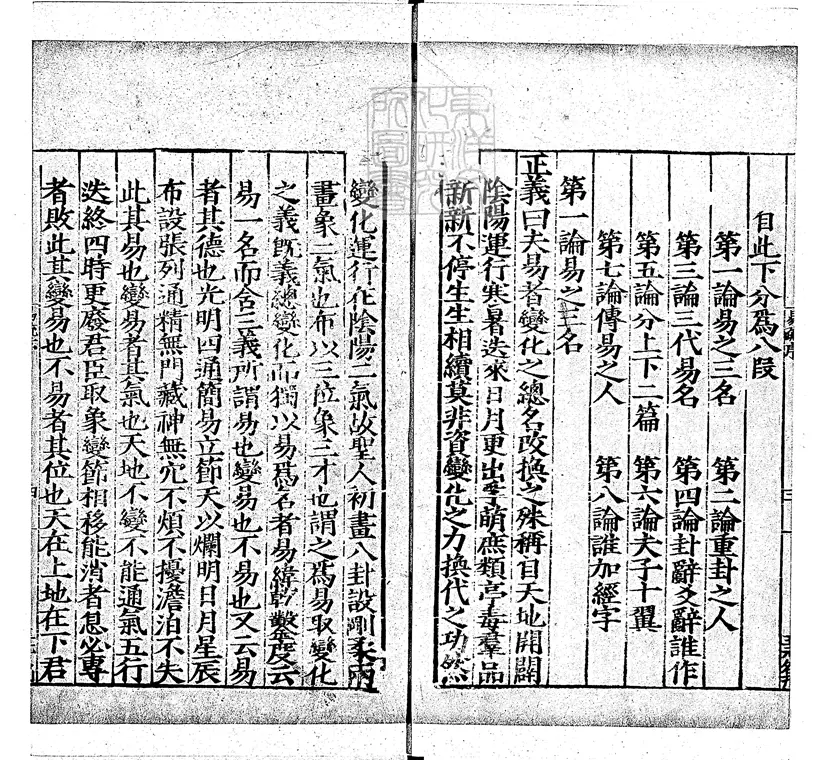 自此下分爲八段
第一論易之三名　第二論重卦之人
第三論三代易名　第四論卦辭爻辭誰作
第五論分上下二篇　第六論夫子十翼
第七論傳易之人　第八論誰加經字
第一論易之三名
正義曰夫易者變化之總名改換之殊稱自天地開闢
陰陽運行寒暑迭來日月更出孚萌庶類亭毒羣品
新新不停生生相續莫非資變化之力換代之功然
變化運行在陰陽二氣故聖人初畫八卦設剛柔兩
畫象二氣也布以三位象三才也謂之爲易取變化
之義既義總變化而獨以易爲名者易緯乾鑿度云
易一名而含三義所謂易也變易也不易也又云易
者其德也光明四通簡易立節天以爛明日月星辰
布設張列通精無門藏神無穴不煩不擾澹泊不失
此其易也變易者其氣也天地不變不能通氣五行
迭終四時更廢君臣取象變節相移能消者息必專
者敗此其變易也不易者其位也天在上地在下君